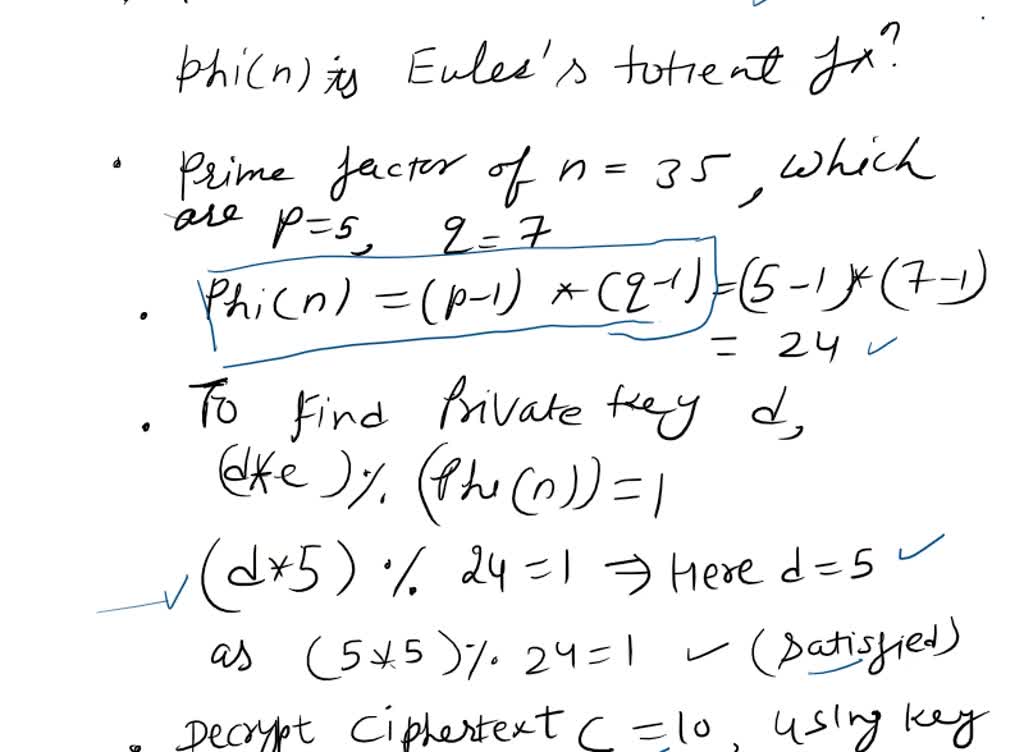 Phi(n) is Euler's totient fx?
• Prime factor of n = 35, which
are p=5, q=7
• Phi(n) = (p-1) * (q-1) = (5-1)*(7-1)
= 24 ✓
• To Find Private key d,
(d*e)% (Phi(n))=1
✓ (d*5) % 24=1 ⇒ Here d=5 ✓
as (5*5)% 24=1 ✓ (satisfied)
• Decrypt Ciphertext C=10, using key